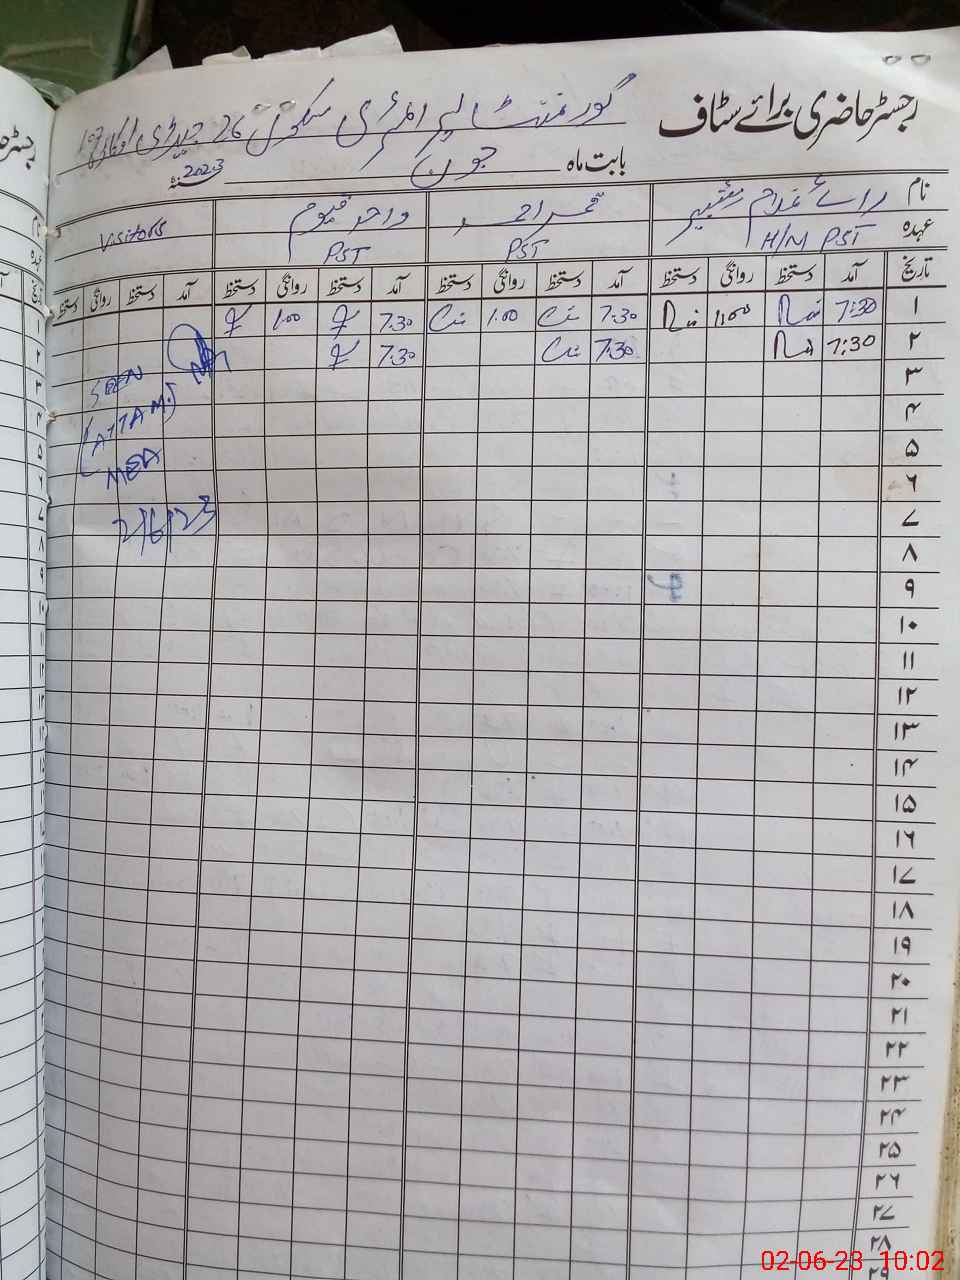 رجسٹر حاضری برائے سٹاف
گورنمنٹ پرائمری سکول 26 جیڈی اوکاڑہ
بابت ماہ جون 2023
نام رائے غلام قمر احمد واحد قیوم Visitors
عہدہ H/M PST PST PST
تاریخ آمد دستخط روانگی دستخط آمد دستخط روانگی دستخط آمد دستخط روانگی دستخط آمد دستخط روانگی دستخط
۱ 7:30 11:00 7:30 1:00 7:30 1:00
۲ 7:30 7:30 7:30
۳ SEEN
۴
۵ MEA
۶
۷ 2/6/23
۸
۹
۱۰
۱۱
۱۲
۱۳
۱۴
۱۵
۱۶
۱۷
۱۸
۱۹
۲۰
۲۱
۲۲
۲۳
۲۴
۲۵
۲۶
۲۷
۲۸
۲۹
02-06-23 10:02